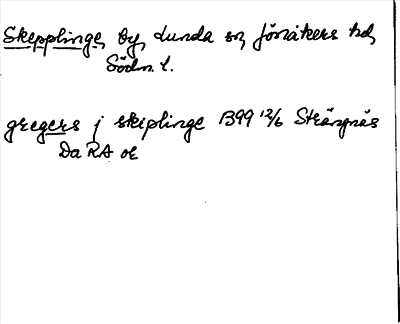 Skepplinge, by, Lunda sn, Jönåkers hd,
Södm. l.
gregers j skiplinge 1399 12/6 Strängnäs
Da RA or